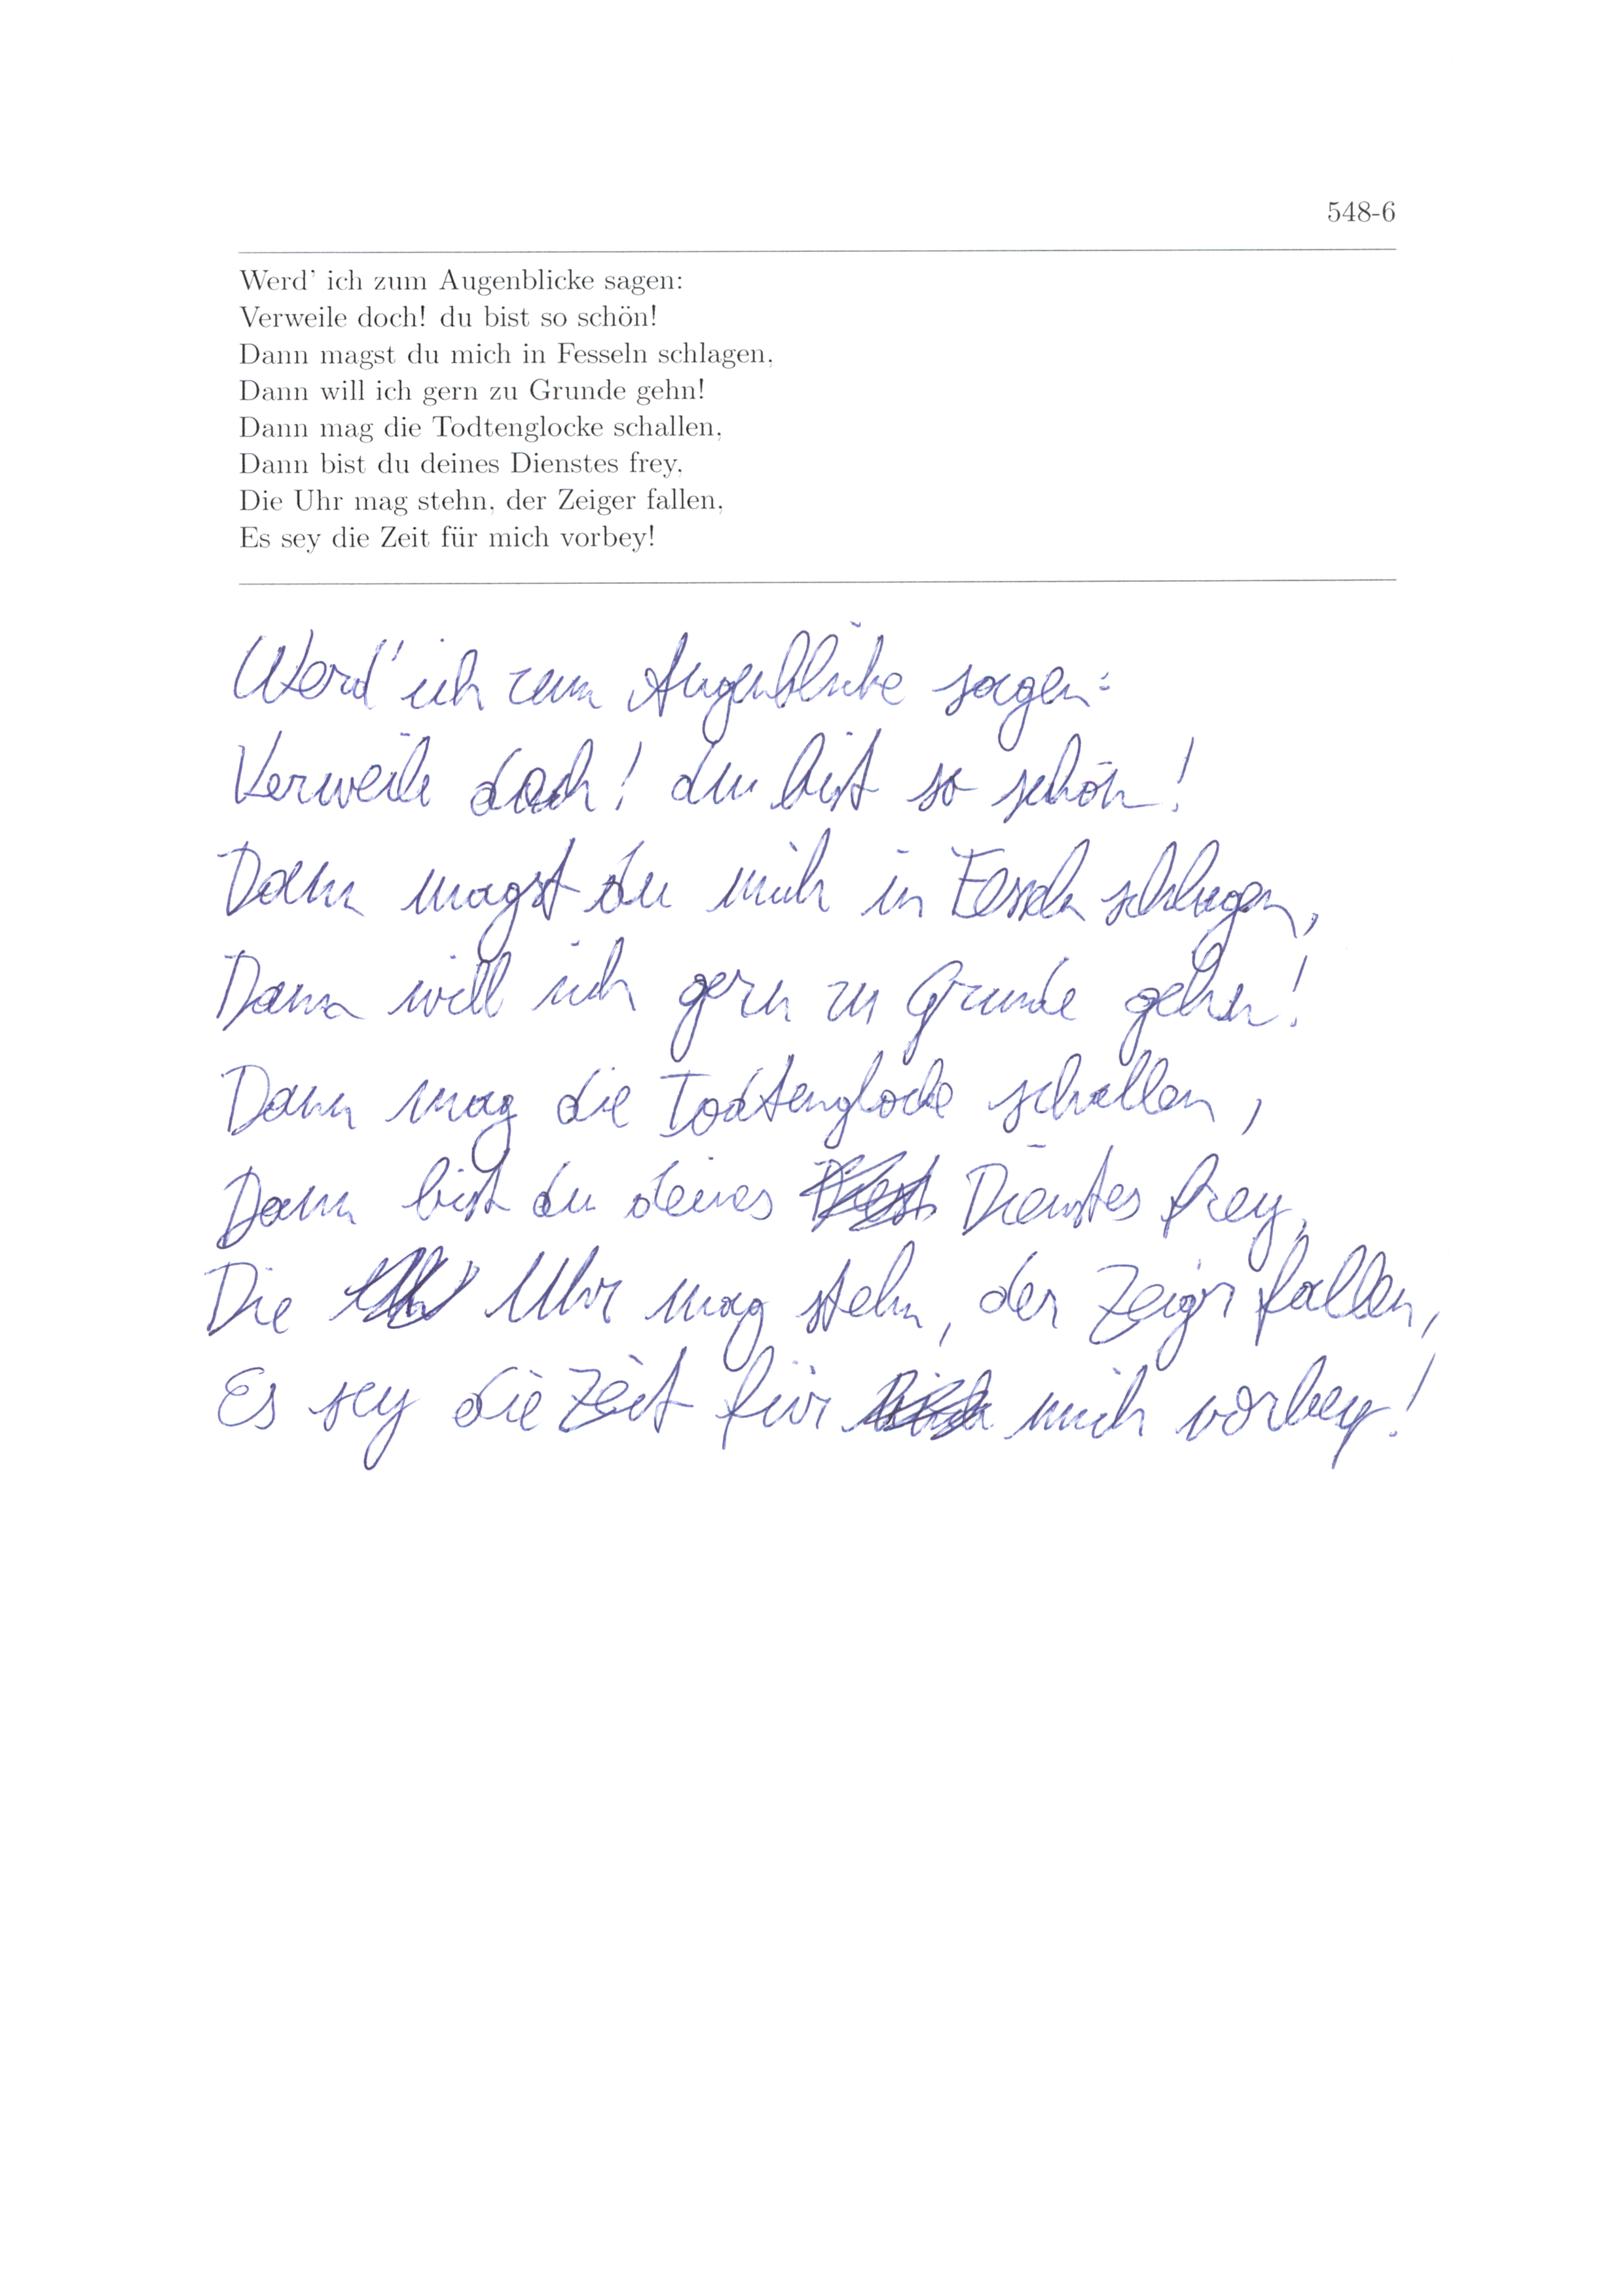 548-6
Werd' ich zum Augenblicke sagen:
Verweile doch! du bist so schön!
Dann magst du mich in Fesseln schlagen,
Dann will ich gern zu Grunde gehn!
Dann mag die Todtenglocke schallen,
Dann bist du deines Dienstes frey,
Die Uhr mag stehn, der Zeiger fallen,
Es sey die Zeit für mich vorbey!
Werd' ich zum Augenblicke sagen:
Verweile doch! du bist so schön!
Dann magst du mich in Fesseln schlagen,
Dann will ich gern zu Grunde gehn!
Dann mag die Todtenglocke schallen,
Dann bist du deines Dienstes frey,
Die Uhr mag stehn, der Zeigr fallen,
Es sey die Zeit für mich vorbey!